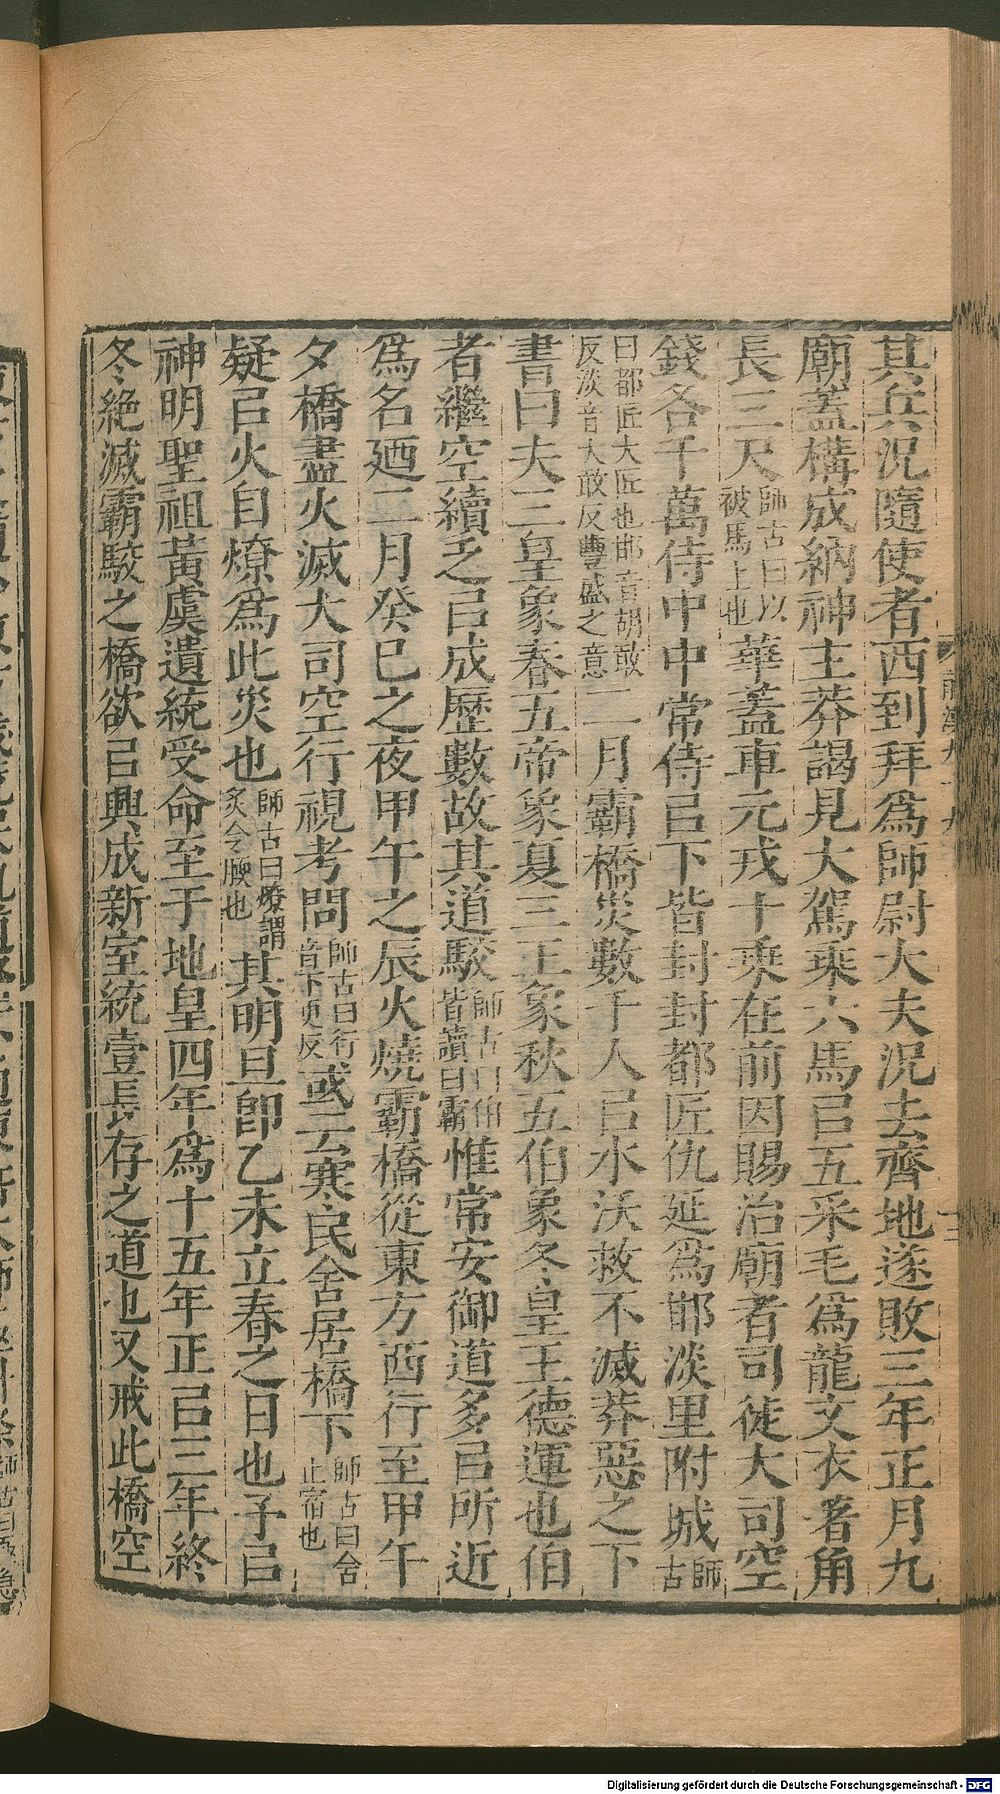 其兵況隨使者西到拜爲師尉大夫況去齊地遂敗三年正月九
廟蓋構成納神主莽謁見大駕乘六馬㠯五采毛爲龍文衣著角
長三尺師古曰以被馬上也華蓋車元戎十乘在前因賜治廟者司徒大司空
錢各千萬侍中中常侍㠯下皆封封都匠仇延爲邯淡里附城師古
曰都匠大匠也邯音胡敢反淡音大敢反豐盛之意二月霸橋災數千人㠯水沃救不滅莽惡之下
書曰夫三皇象春五帝象夏三王象秋五伯象冬皇王德運也伯
者繼空續乏㠯成歷數故其道駮師古曰伯皆讀曰霸惟常安御道多㠯所近
爲名廼二月癸巳之夜甲午之辰火燒霸橋從東方西行至甲午
夕橋盡火滅大司空行視考問師古曰行音下更反或云寒民舍居橋下師古曰舍止宿也
疑㠯火自燎爲此災也師古曰燎謂炙令煗也其明旦卽乙未立春之日也予㠯
神明聖祖黃虞遺統受命至于地皇四年爲十五年正㠯三年終
冬絶滅霸駮之橋欲㠯興成新室統壹長存之道也又戒此橋空
Digitalisierung gefördert durch die Deutsche Forschungsgemeinschaft - DFG